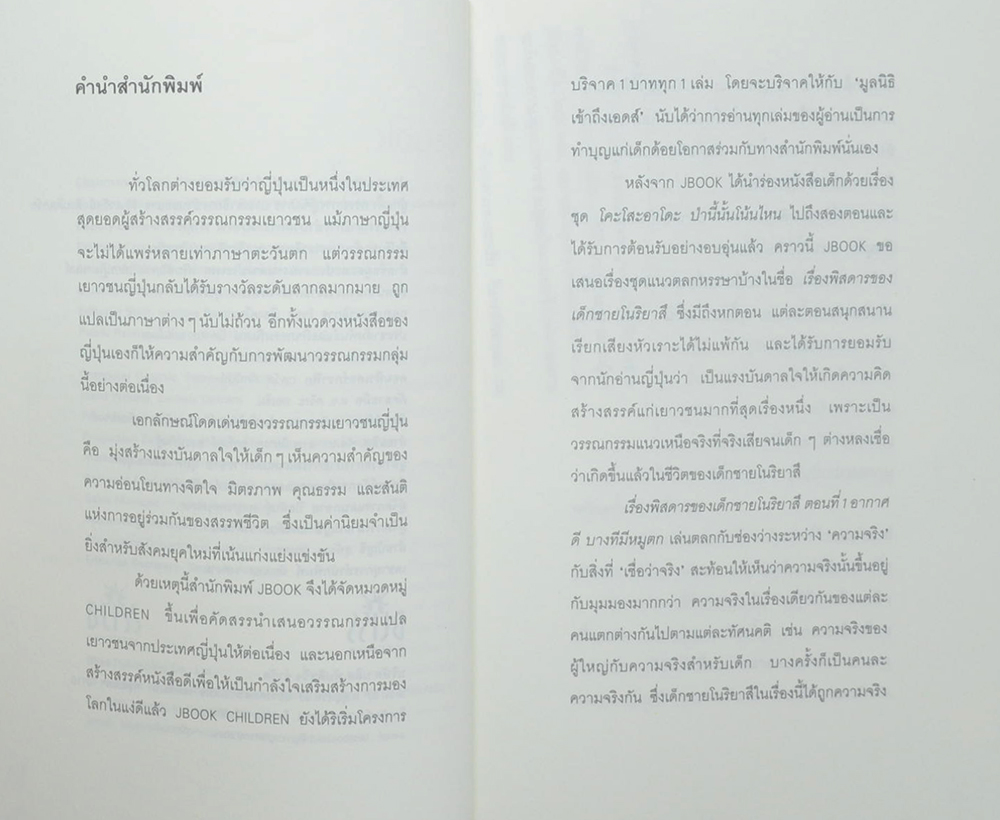 คำนำสำนักพิมพ์
ทั่วโลกต่างยอมรับว่าญี่ปุ่นเป็นหนึ่งในประเทศ
สุดยอดผู้สร้างสรรค์วรรณกรรมเยาวชน แม้ภาษาญี่ปุ่น
จะไม่ได้แพร่หลายเท่าภาษาตะวันตก แต่วรรณกรรม
เยาวชนญี่ปุ่นกลับได้รับรางวัลระดับสากลมากมาย ถูก
แปลเป็นภาษาต่าง ๆ นับไม่ถ้วน อีกทั้งแวดวงหนังสือของ
ญี่ปุ่นเองก็ให้ความสำคัญกับการพัฒนาวรรณกรรมกลุ่ม
นี้อย่างต่อเนื่อง
เอกลักษณ์โดดเด่นของวรรณกรรมเยาวชนญี่ปุ่น
คือ มุ่งสร้างแรงบันดาลใจให้เด็ก ๆ เห็นความสำคัญของ
ความอ่อนโยนทางจิตใจ มิตรภาพ คุณธรรม และสันติ
แห่งการอยู่ร่วมกันของสรรพชีวิต ซึ่งเป็นค่านิยมจำเป็น
ยิ่งสำหรับสังคมยุคใหม่ที่เน้นแก่งแย่งแข่งขัน
ด้วยเหตุนี้สำนักพิมพ์ JBOOK จึงได้จัดหมวดหมู่
CHILDREN ขึ้นเพื่อคัดสรรนำเสนอวรรณกรรมแปล
เยาวชนจากประเทศญี่ปุ่นให้ต่อเนื่อง และนอกเหนือจาก
สร้างสรรค์หนังสือดีเพื่อให้เป็นกำลังใจเสริมสร้างการมอง
โลกในแง่ดีแล้ว JBOOK CHILDREN ยังได้ริเริ่มโครงการ
บริจาค 1 บาททุก 1 เล่ม โดยจะบริจาคให้กับ ‘มูลนิธิ
เข้าถึงเอดส์’ นับได้ว่าการอ่านทุกเล่มของผู้อ่านเป็นการ
ทำบุญแก่เด็กด้อยโอกาสร่วมกับทางสำนักพิมพ์นั่นเอง
หลังจาก JBOOK ได้นำร่องหนังสือเด็กด้วยเรื่อง
ชุด โคะโสะอาโดะ ป่านี้นั้นโน้นไหน ไปถึงสองตอนและ
ได้รับการต้อนรับอย่างอบอุ่นแล้ว คราวนี้ JBOOK ขอ
เสนอเรื่องชุดแนวตลกหรรษาบ้างในชื่อ เรื่องพิสดารของ
เด็กชายโนริยาสึ ซึ่งมีถึงหกตอน แต่ละตอนสนุกสนาน
เรียกเสียงหัวเราะได้ไม่แพ้กัน และได้รับการยอมรับ
จากนักอ่านญี่ปุ่นว่า เป็นแรงบันดาลใจให้เกิดความคิด
สร้างสรรค์แก่เยาวชนมากที่สุดเรื่องหนึ่ง เพราะเป็น
วรรณกรรมแนวเหนือจริงที่จริงเสียจนเด็ก ๆ ต่างหลงเชื่อ
ว่าเกิดขึ้นแล้วในชีวิตของเด็กชายโนริยาสึ
เรื่องพิสดารของเด็กชายโนริยาสึ ตอนที่ 1 อากาศ
ดี บางทีมีหมูตก เล่นตลกกับช่องว่างระหว่าง ‘ความจริง’
กับสิ่งที่ ‘เชื่อว่าจริง’ สะท้อนให้เห็นว่าความจริงนั้นขึ้นอยู่
กับมุมมองมากกว่า ความจริงในเรื่องเดียวกันของแต่ละ
คนแตกต่างกันไปตามแต่ละทัศนคติ เช่น ความจริงของ
ผู้ใหญ่กับความจริงสำหรับเด็ก บางครั้งก็เป็นคนละ
ความจริงกัน ซึ่งเด็กชายโนริยาสึในเรื่องนี้ได้ถูกความจริง